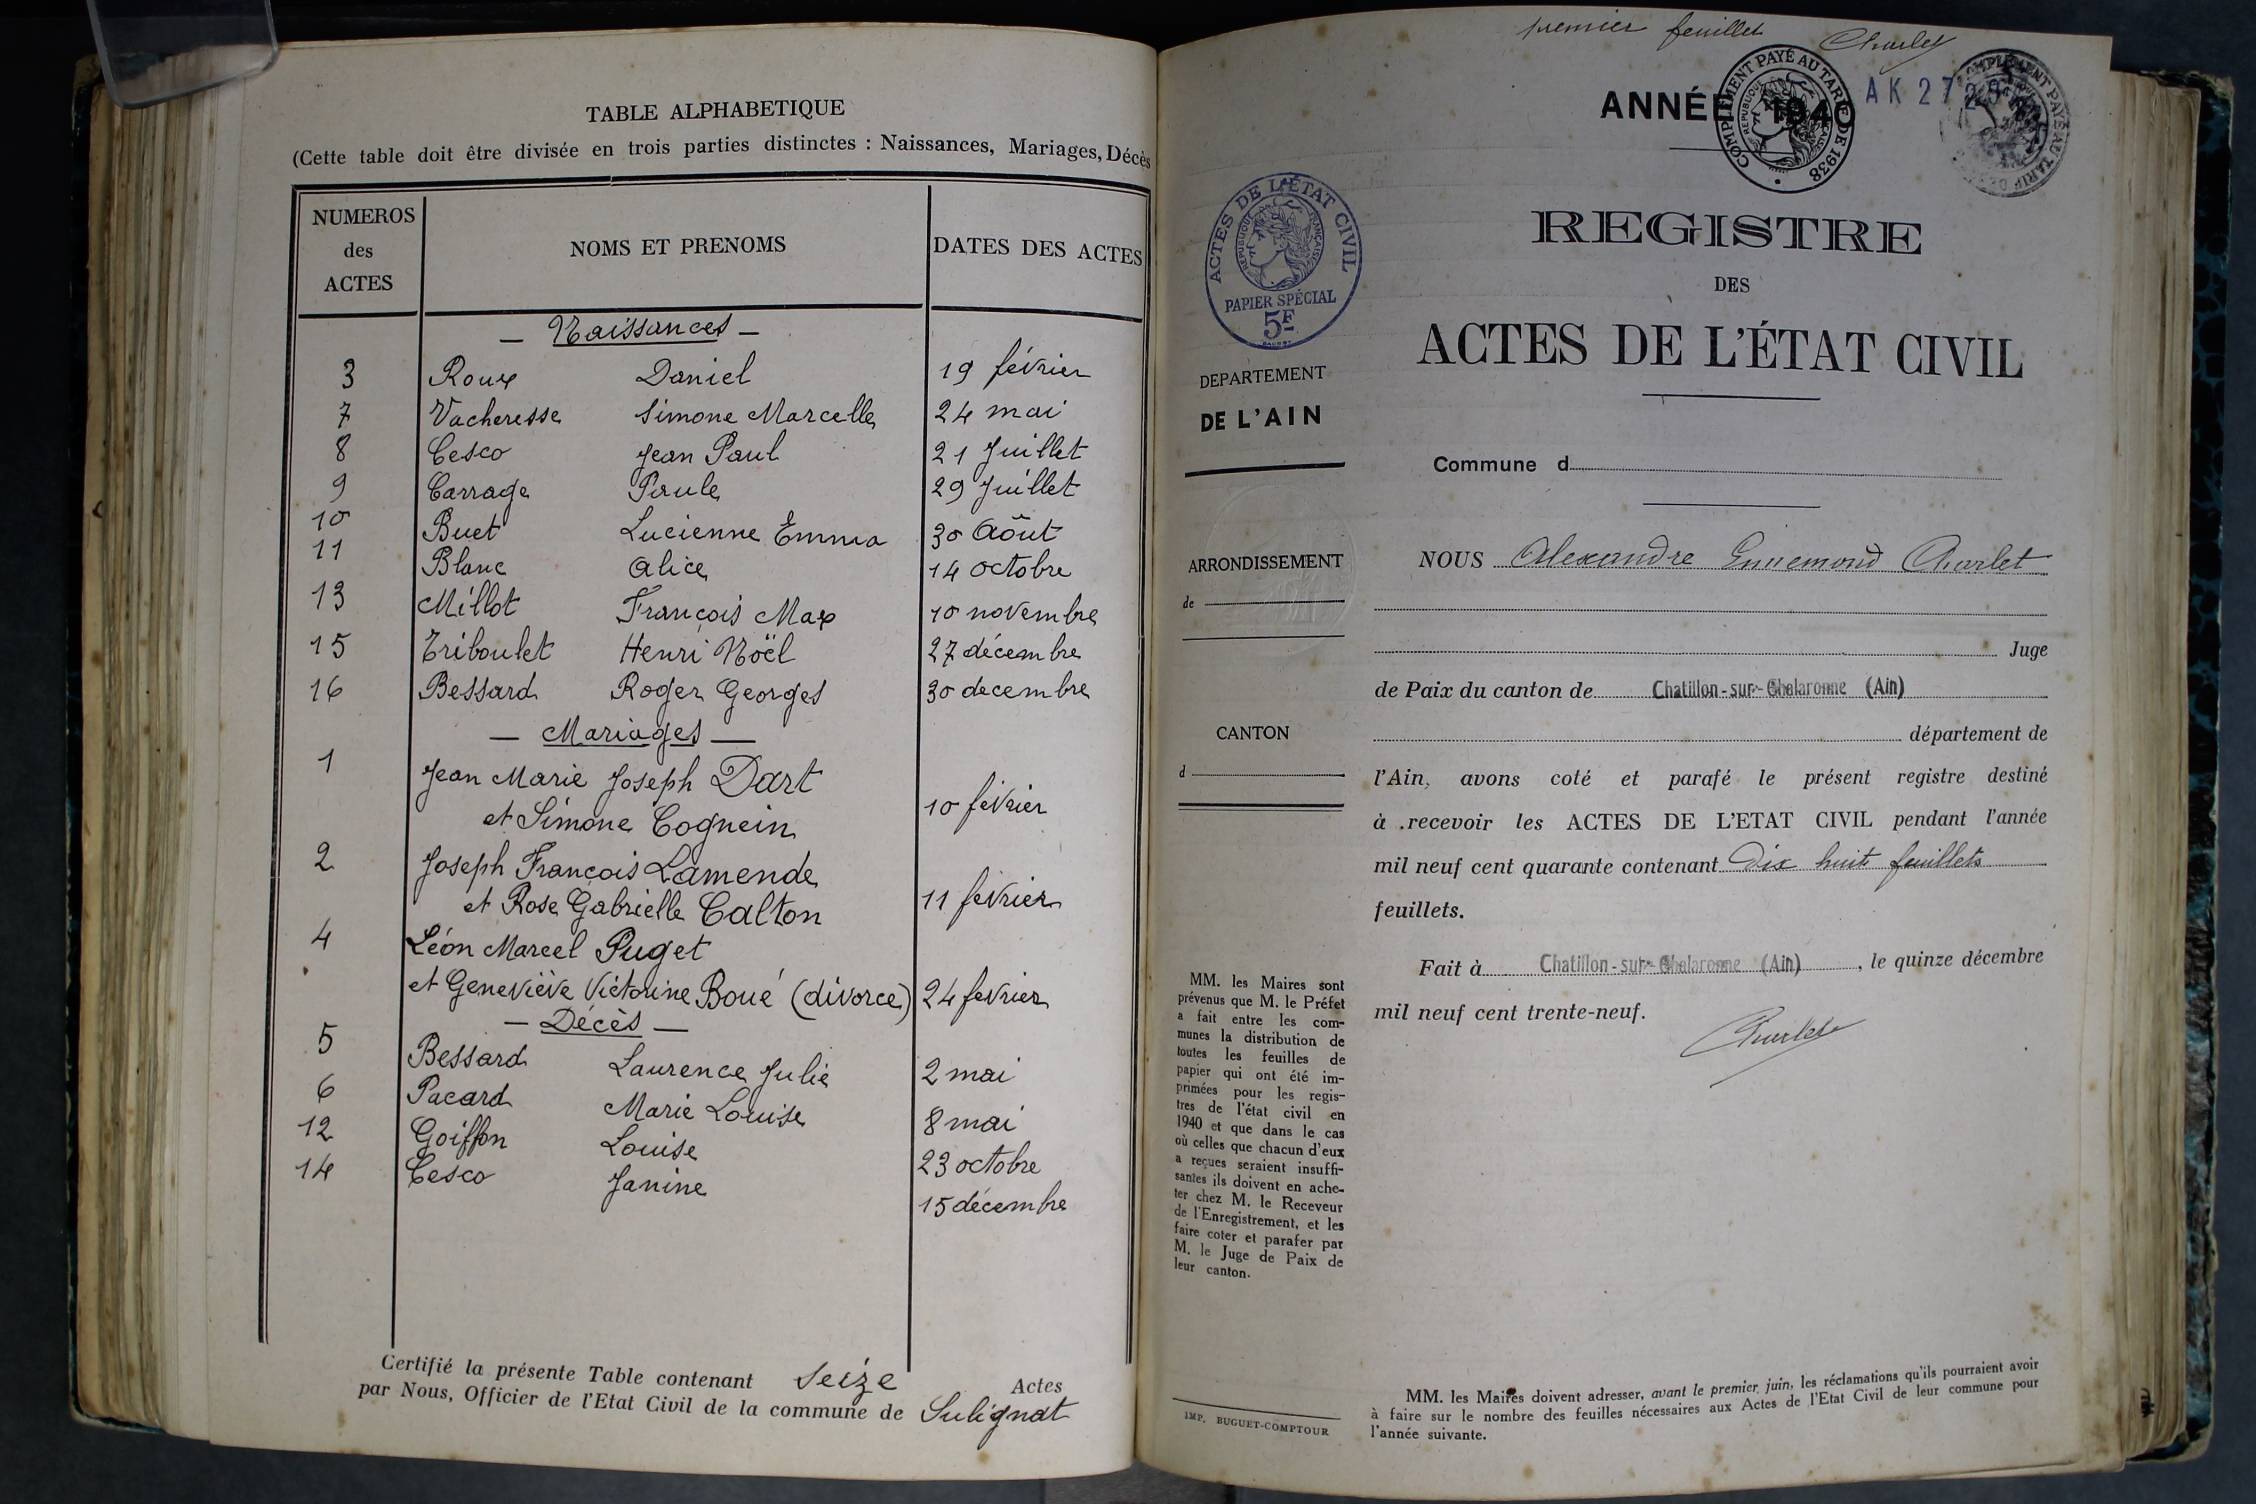 TABLE ALPHABETIQUE
(Cette table doit être divisée en trois parties distinctes : Naissances, Mariages, Décès
NUMEROS des ACTES
NOMS ET PRENOMS
DATES DES ACTES
— Naissances —
3 Roux Daniel 19 février
7 Vacheresse Simone Marcelle 24 mai
8 Cesco Jean Paul 21 Juillet
9 Carrage Paule 29 Juillet
10 Buet Lucienne Emma 30 Aôut
11 Blanc Alice 14 octobre
13 Millot François Max 10 novembre
15 Triboulet Henri Nöel 27 décembre
16 Bessard Roger Georges 30 decembre
— Mariages —
1 Jean Marie Joseph Dart
et Simone Cognein 10 février
2 Joseph François Lamende
et Rose Gabrielle Calton 11 février
4 Léon Marcel Puget
et Geneviève Victorine Boué (divorce) 24 février
— Décès —
5 Bessard Laurence Julie 2 mai
6 Pacard Marie Louise 8 mai
12 Goiffon Louise 23 octobre
14 Cesco Janine 15 décembre
Certifié la présente Table contenant Seize Actes
par Nous, Officier de l'Etat Civil de la commune de Sulignat
premier feuillet Charlet
ANNÉE 1940
COMPLÉMENT PAYÉ AU TARIF DE 1938
AK 27
COMPLÉMENT PAYÉ AU TARIF DE
ACTES DE L'ÉTAT CIVIL
RÉPUBLIQUE FRANÇAISE
PAPIER SPÉCIAL
5F
REGISTRE
DES
ACTES DE L'ÉTAT CIVIL
DEPARTEMENT
DE L'AIN
Commune d
ARRONDISSEMENT
de
CANTON
d
NOUS Alexandre Ennemond Charlet
Juge
de Paix du canton de Chatillon-sur-Chalaronne (Ain)
département de
l'Ain, avons coté et parafé le présent registre destiné
à recevoir les ACTES DE L'ETAT CIVIL pendant l'année
mil neuf cent quarante contenant Dix huit feuillets
feuillets.
Fait à Chatillon-sur-Chalaronne (Ain), le quinze décembre
mil neuf cent trente-neuf.
Charlet
MM. les Maires sont
prévenus que M. le Préfet
a fait entre les com-
munes la distribution de
toutes les feuilles de
papier qui ont été im-
primées pour les regis-
tres de l'état civil en
1940 et que dans le cas
où celles que chacun d'eux
a reçues seraient insuffi-
santes ils doivent en ache-
ter chez M. le Receveur
de l'Enregistrement, et les
faire coter et parafer par
M. le Juge de Paix de
leur canton.
IMP. BUGUET-COMPTOUR
MM. les Maires doivent adresser, avant le premier juin, les réclamations qu'ils pourraient avoir
à faire sur le nombre des feuilles nécessaires aux Actes de l'Etat Civil de leur commune pour
l'année suivante.